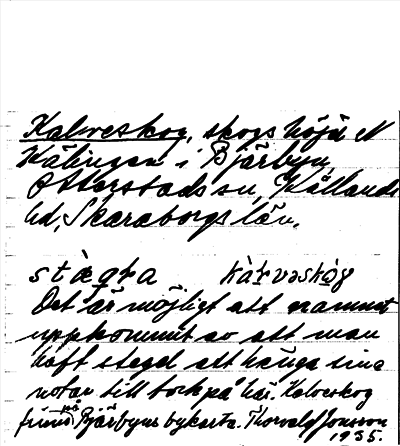 Kalveskog, skogshöjd N
Kälingen i Bjärbyn,
Otterstads sn, Kållands
hd, Skaraborgs län.
Det är möjligt att namnet
uppkommit av att man
haft stegel att hänga sina
notar till tork på här. Kalveskog
finns på Bjärbyns bykarta. Thorvald Jonsson
1935.